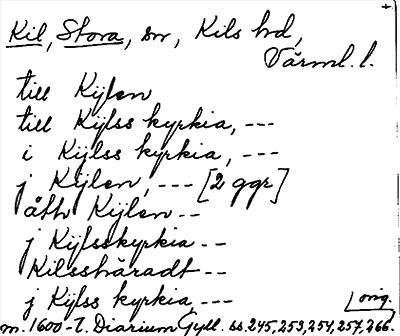 Kil, Stora, sn, Kils hd,
Värml. l.
till Kijlen
till Kijlss kyrkia, ---
i Kijlss kyrkia, ---
j Kijlen, --- [2 ggr]
åth Kijlen --
j Kijlsskyrkia --
Kilsshäradt --
j Kijlss kyrkia, --
orig.
m. 1600-t. Diarium Gyll. ss. 245, 253, 254, 257, 266.